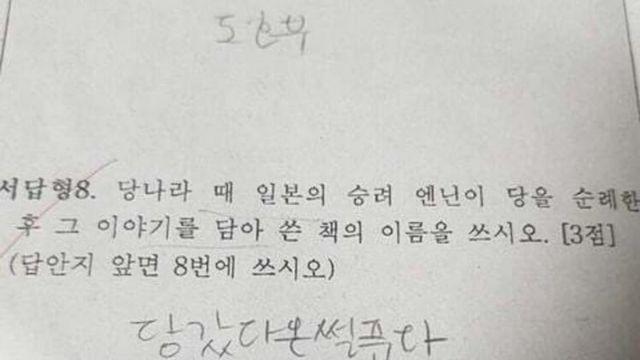 도호부
서답형8. 당나라 때 일본의 승려 엔닌이 당을 순례한
후 그 이야기를 담아 쓴 책의 이름을 쓰시오. [3점]
(답안지 앞면 8번에 쓰시오)
당갔다온썰푼다